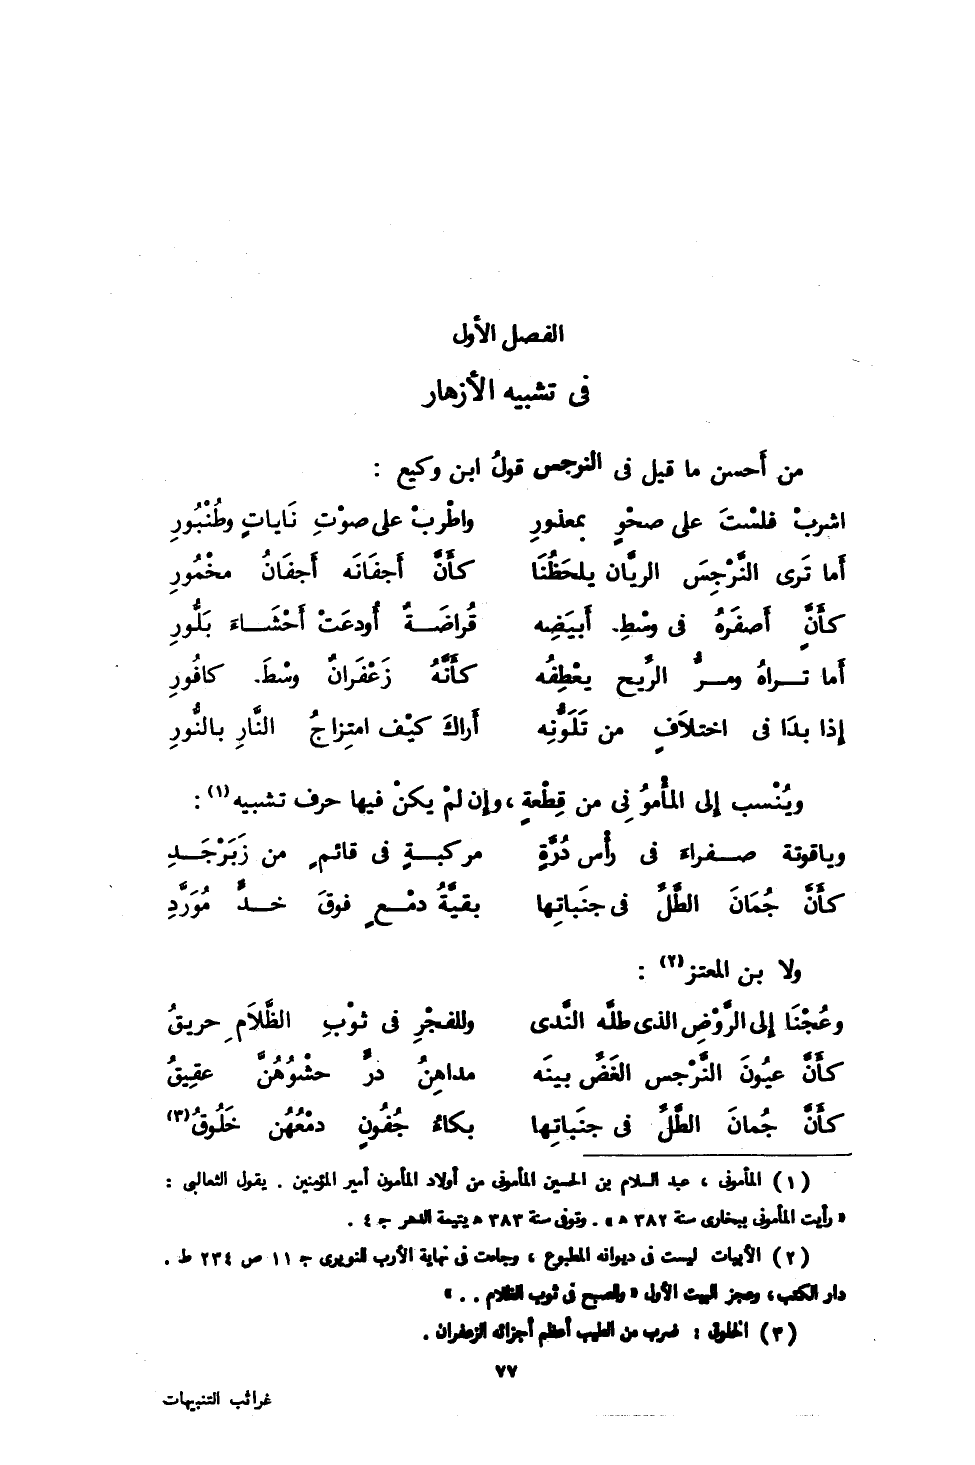 الفصل الأول
فى تشبيه الأزهار
من أَحسن ما قيل فى النرجس قولُ ابن وكيع :
اشربْ فلسْتَ على صحْوٍ بمعذورِ واطْربْ على صوْتِ نَاياتٍ وطُنْبُورِ
أما تَرى النَّرْجِسَ الريَّان يلحَظُنَا كأَنَّ أَجفَانَه أَجفَانُ مخْمُورِ
كأَنَّ أَصفَرهُ فى وسْطِ أَبيَضِه قُراضَةٌ أُودعَتْ أَحْشَاءَ بَلُّورِ
أَما تراهُ ومرُّ الرِّيح يعْطِفُه كأَنَّهُ زَعْفَرانٌ وسْطَ كافُورِ
إذا بدَا فى اختلَافٍ من تَلَوُّنِه أَراكَ كيْف امتِزاجُ النَّارِ بالنُّورِ
ويُنْسب إلى المأْمُونِى من قِطْعةٍ ، وإن لمْ يكنْ فيها حرف تشبيه(١) :
وياقوتة صفراءَ فى رأْس دُرَّةٍ مركبةٍ فى قائمٍ من زَبَرْجَدِ
كأَنَّ جُمَانَ الطَّلِّ فى جنَباتِها بقيَّةُ دمْعٍ فوقَ خدٍّ مُوَرَّدِ
ولا بن المعتز(٢) :
وعُجْنَا إلى الرَّوْضِ الذى طلَّه النَّدى وللفجْرِ فى ثوْبِ الظَّلَامِ حريقُ
كأَنَّ عيُونَ النَّرْجس الغَضِّ بينَه مداهِنُ درٍّ حشْوُهُنَّ عقِيقُ
كأَنَّ جُمانَ الطَّلِّ فى جنَباتِها بكاءُ جُفُونٍ دمْعُهُن خَلُوقُ(٣)
(١) المأمونى ، عبد السلام بن الحسين المأمونى من أولاد المأمون أمير المؤمنين . يقول الثعالبى :
« رأيت المأمونى ببخارى سنة ٣٨٢ ه » . وتوفى سنة ٣٨٣ ه يتيمة الدهر ج ٤ .
(٢) الأبيات ليست فى ديوانه المطبوع ، وجاءت فى نهاية الأرب للنويرى ج ١١ ص ٢٣٤ ط .
دار الكتب ، وعجز البيت الأول « والصبح فى ثوب الظلام . . »
(٣) الخلوق : ضرب من الطيب أعظم أجزائه الزعفران .
٧٧
غرائب التنبيهات